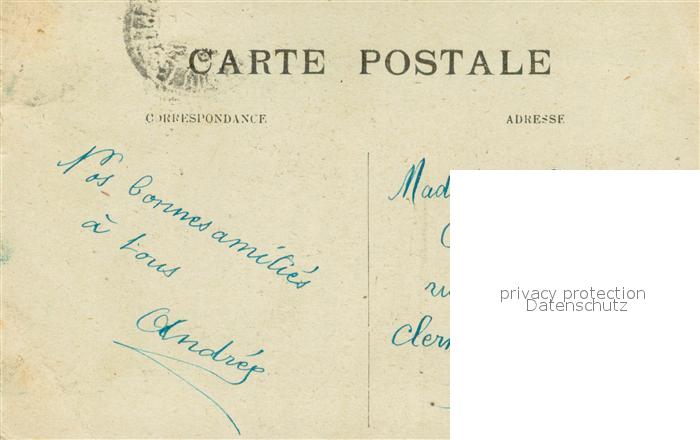 CARTE POSTALE
CORRESPONDANCE
ADRESSE
Nos bonnes amitiés
à tous
Andrée
Mad
C
ru
Clerm
privacy protection
Datenschutz